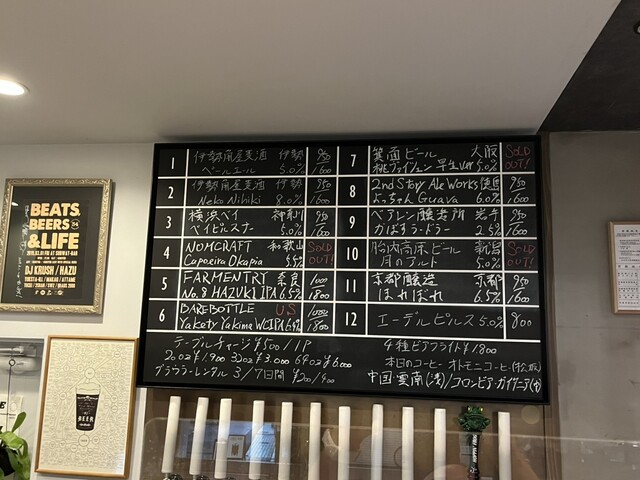 1 伊勢角屋麦酒 伊勢 950
ペールエール 5.0% 1600
2 伊勢角屋麦酒 伊勢 950
Neko Nihiki 8.0% 1600
3 横浜ベイ 神奈川 950
ベイピルスナー 5.0% 1600
4 NOMCRAFT 和歌山 SOLD
Capoeira Okapia 5.5% OUT!
5 FARMENTRY 奈良 1000
No.8 HAZUKI IPA 6.5% 1800
6 BAREBOTTLE US 1000
Yakety Yakima WCIPA 1800
7 箕面ビール 大阪 SOLD
桃ヴァイツェン 早生ver 5.0% OUT!
8 2nd Story Ale Works 徳島 950
よっちゃん Guava 6.0% 1600
9 ベアレン醸造所 岩手 950
かぼすラ・ドラー 2.5% 1600
10 胎内高原ビール 新潟 SOLD
月のアルト 5.0% OUT!
11 京都醸造 京都 950
はればれ 6.5% 1600
12 エーデルピルス 5.0% 800
テーブルチャージ ¥500/1P
20oz ¥1,900 32oz ¥3,000 64oz ¥6,000
グラウラーレンタル 3/7日間 ¥200/400
4種ビアフライト ¥1800
本日のコーヒー オトモニコーヒー
中国・雲南(浅)/コロンビア・
BEATS,
BEERS
&LIFE
DJ KRUSH / HAZU
BEER